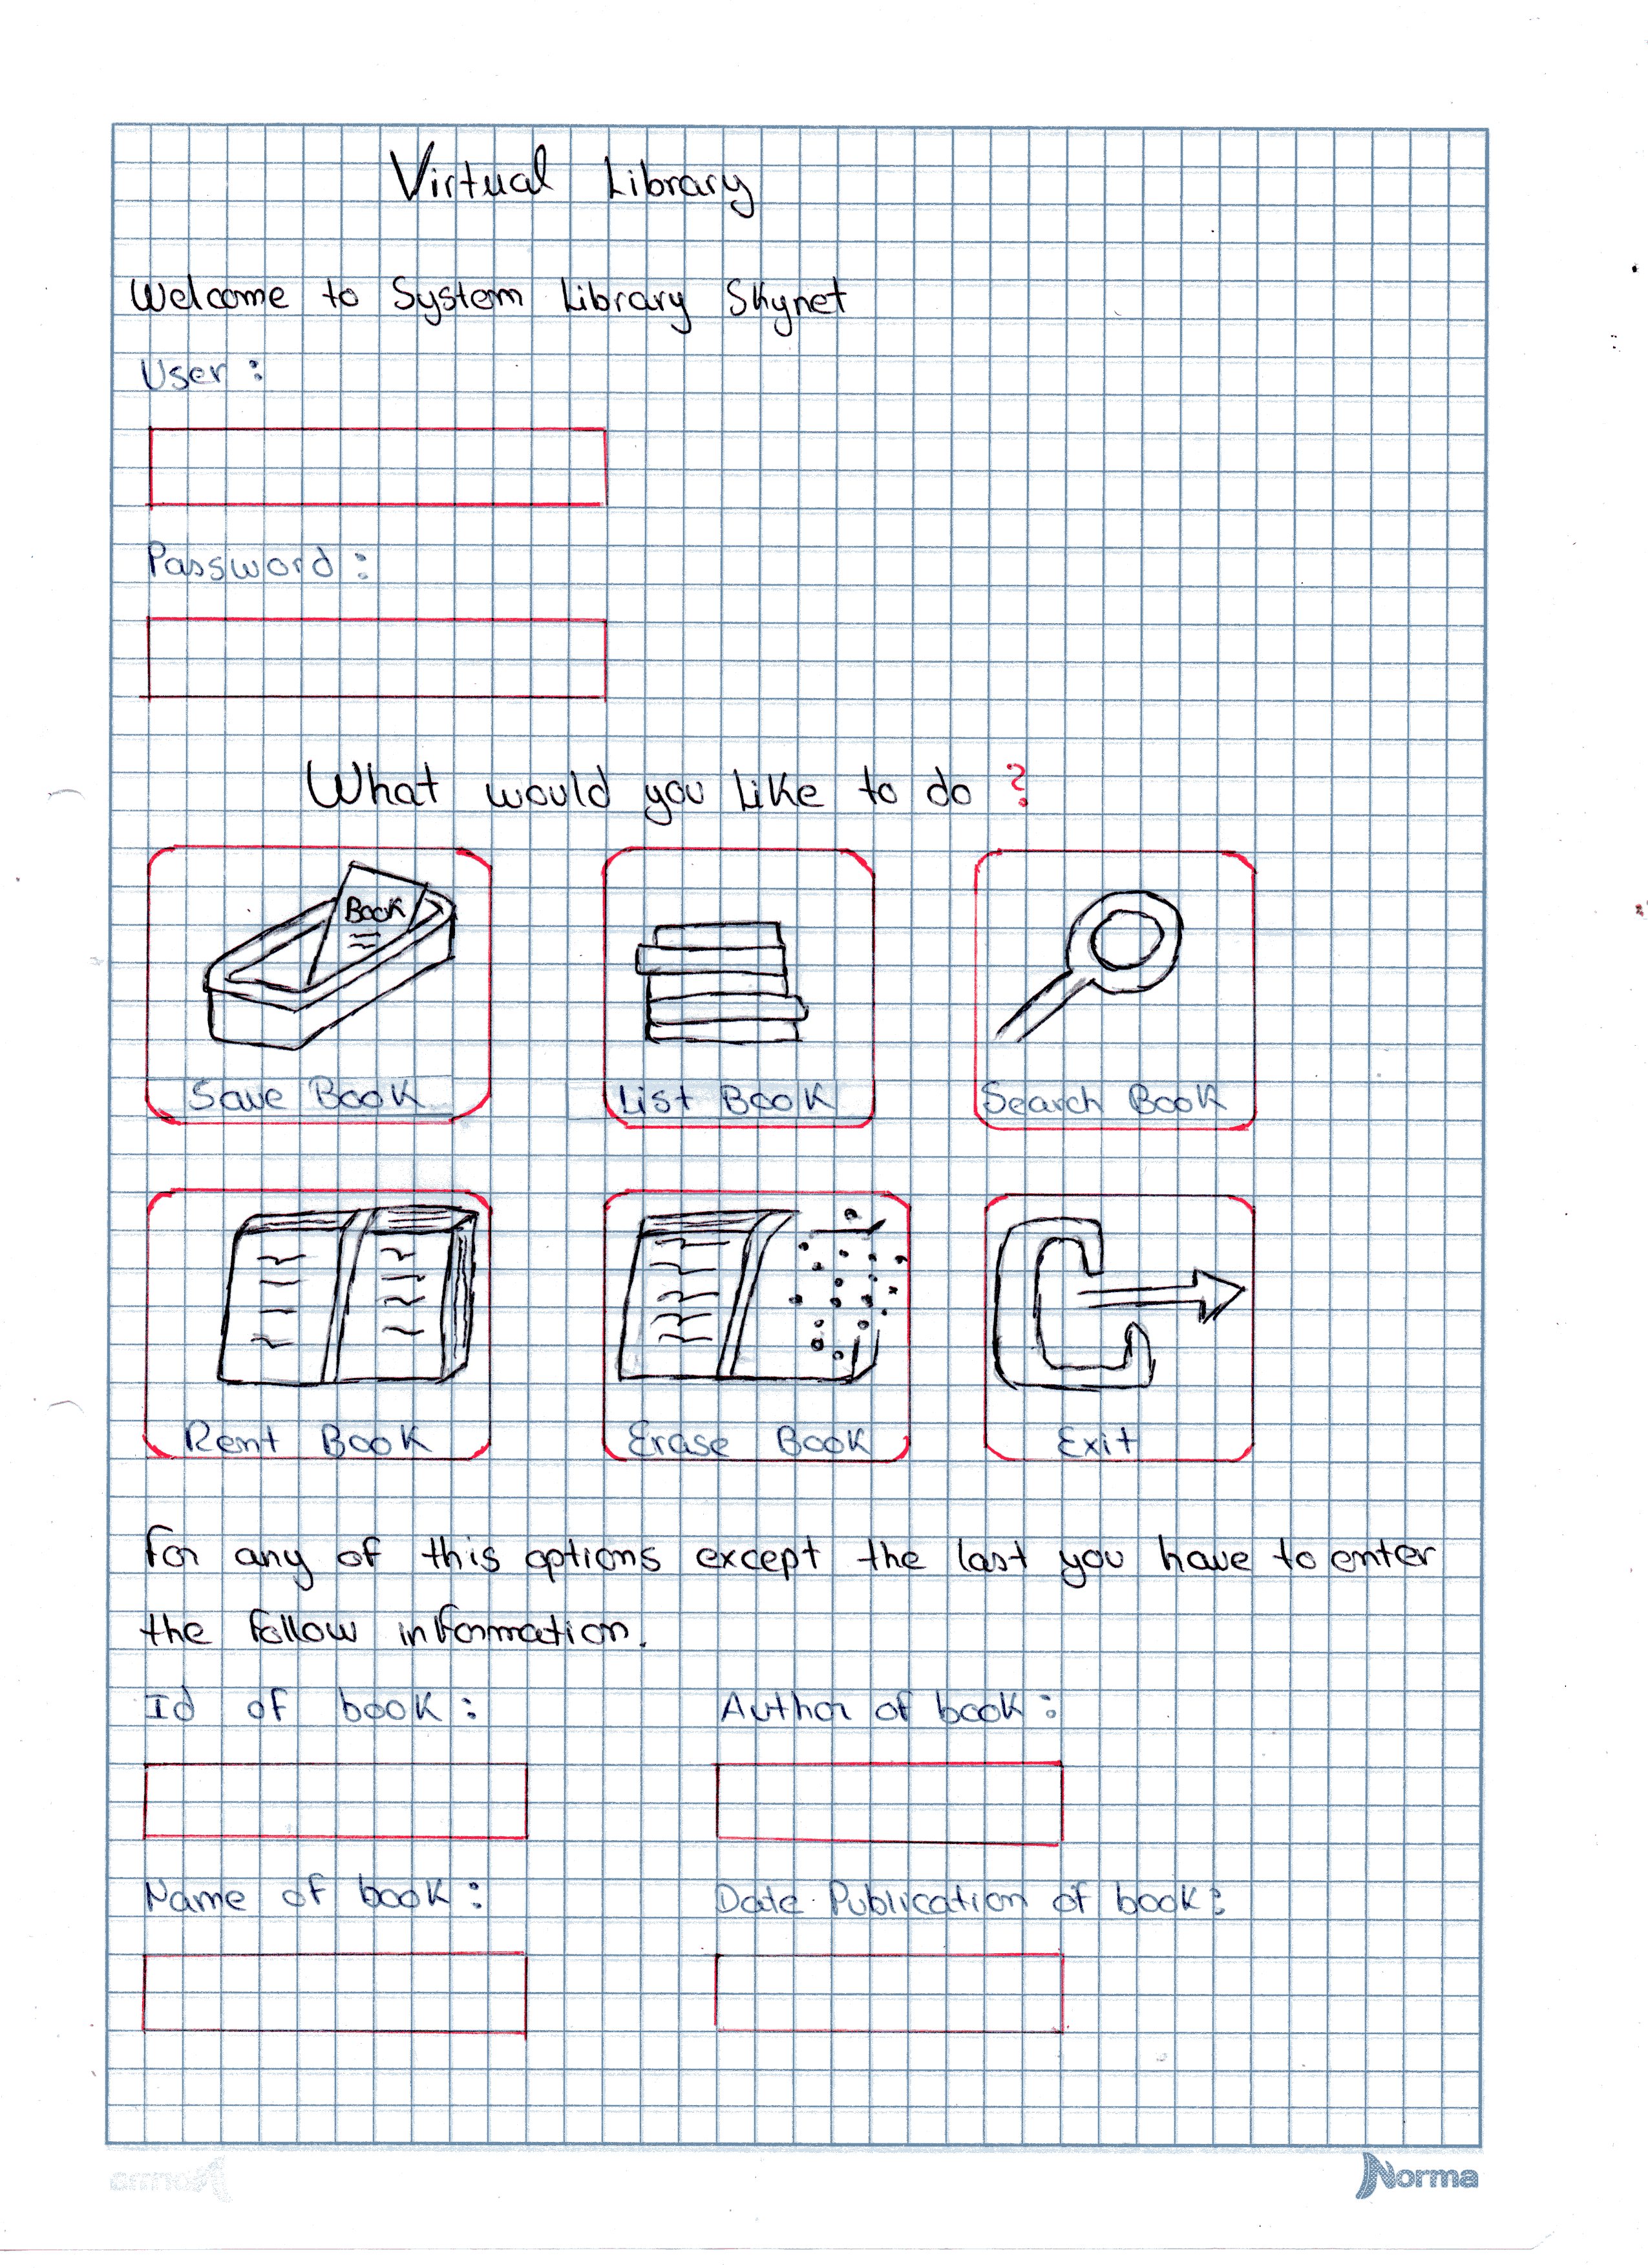 Virtual Library
Welcome to System Library Skynet
User :
Password :
What would you like to do ?
Book
Save Book
List Book
Search Book
Rent Book
Erase Book
Exit
For any of this options except the last you have to enter
the follow information.
Id of book :
Author of book :
Name of book :
Date Publication of book :
Norma